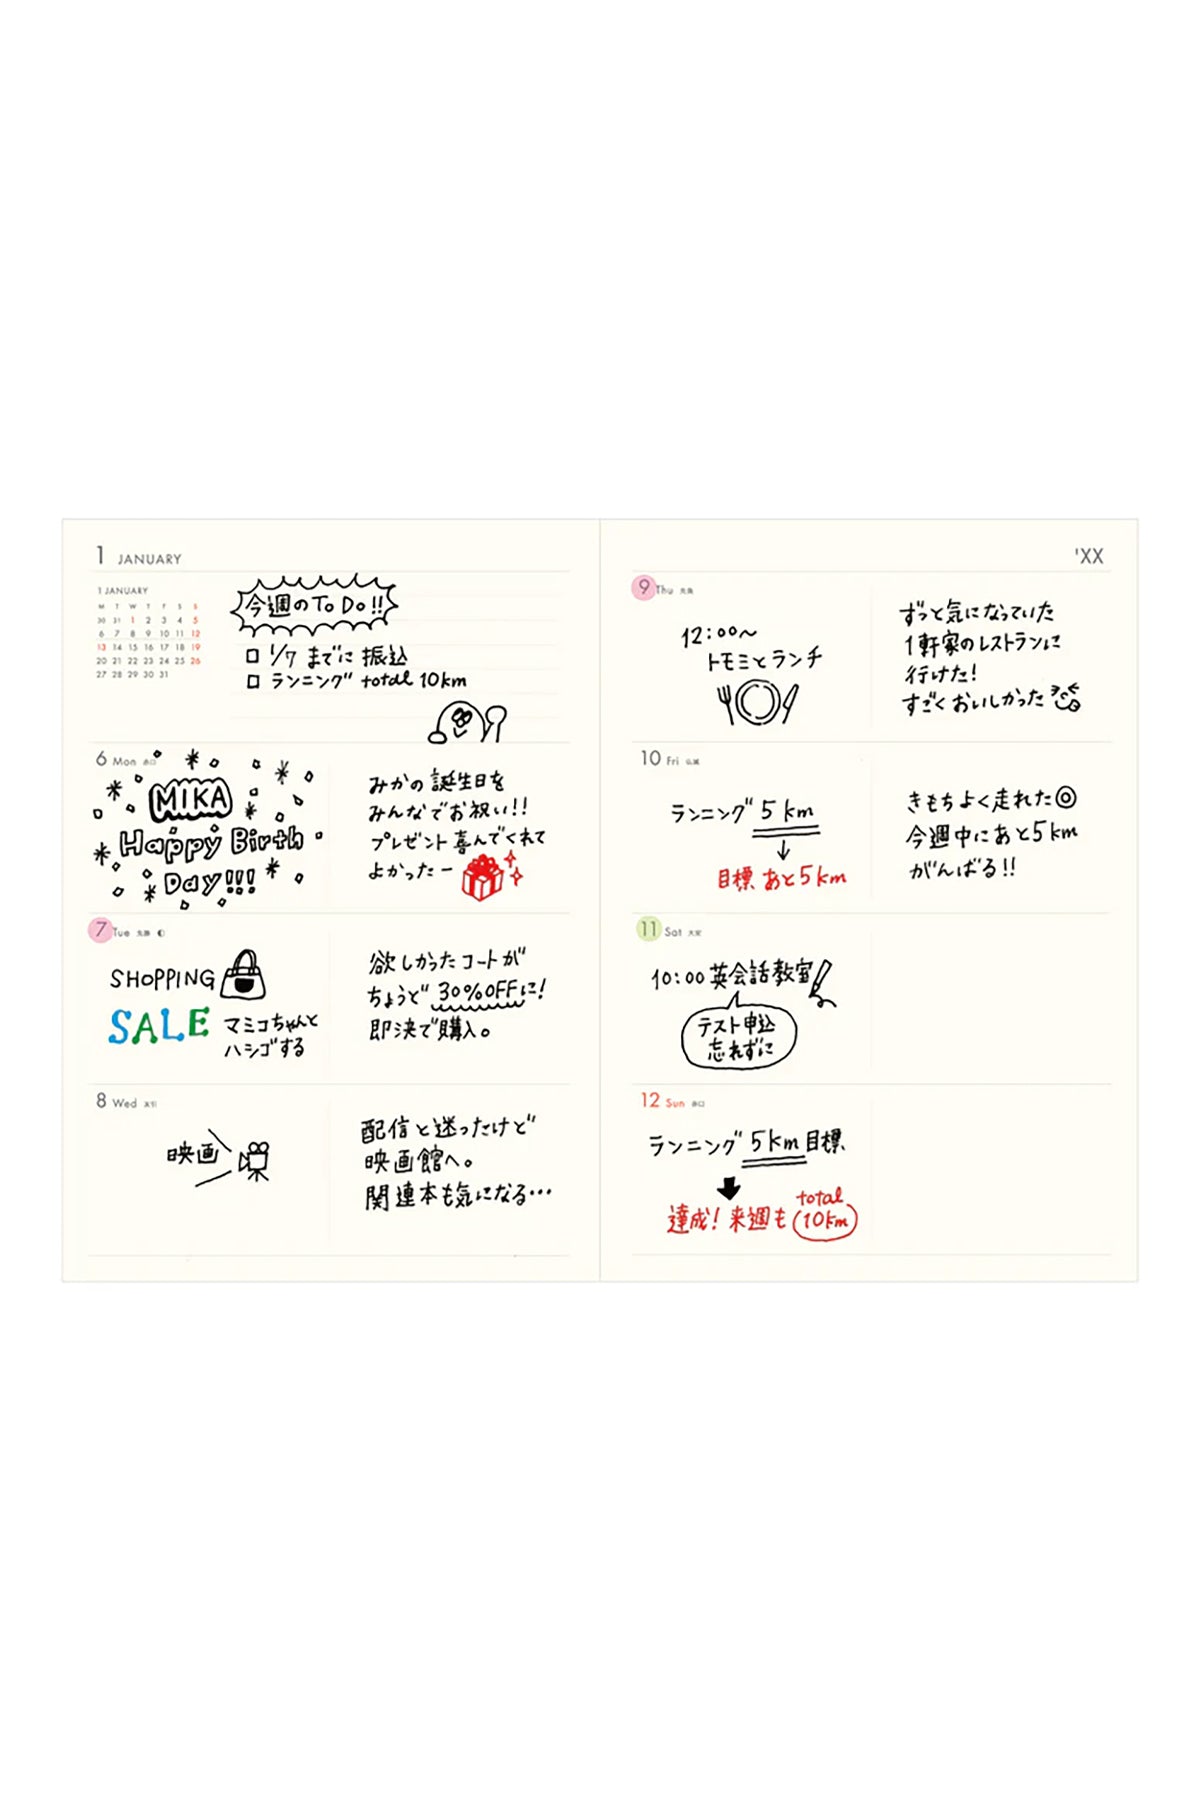 1 JANUARY
'XX
1 JANUARY
M T W T F S S
30 31 1 2 3 4 5
6 7 8 9 10 11 12
13 14 15 16 17 18 19
20 21 22 23 24 25 26
27 28 29 30 31
今週のToDo!!
□ 1/7 までに 振込
□ ランニング total 10km
6 Mon 赤口
MIKA
Happy Birth
Day!!!
みかの 誕生日を
みんなでお祝い!!
プレゼント喜んでくれて
よかったー
7 Tue 先勝
SHOPPING
SALE
マミコちゃんと
ハシゴする
欲しかったコートが
ちょうど 30%OFFに!
即決で購入。
8 Wed 友引
映画
配信と迷ったけど
映画館へ。
関連本も気になる…
9 Thu 先負
12:00〜
トモミとランチ
ずっと気になっていた
1軒家のレストランに
行けた!
すごくおいしかった
10 Fri 仏滅
ランニング 5km
目標 あと5km
きもちよく走れた◎
今週中にあと5km
がんばる!!
11 Sat 大安
10:00 英会話教室
テスト申込
忘れずに
12 Sun 赤口
ランニング 5km 目標
達成! 来週も total 10km